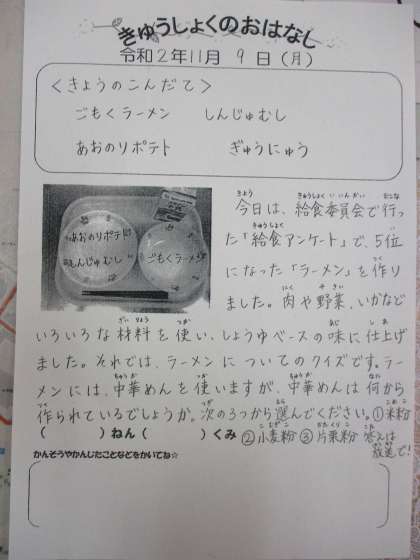 きゅうしょくのおはなし
令和2年11月 9日(月)
＜きょうのこんだて＞
ごもくラーメン しんじゅむし
あおのりポテト ぎゅうにゅう
あおのりポテト
しんじゅむし
ごもくラーメン
今日は、給食委員会で行っ
た「給食アンケート」で、5位
になった「ラーメン」を作り
ました。肉や野菜、いかなど
いろいろな材料を使い、しょうゆベースの味に仕上げ
ました。それでは、ラーメンについてのクイズです。ラー
メンには、中華めんを使いますが、中華めんは何から
作られているでしょうか。次の3つから選んでください。①米粉
( )ねん( )くみ ②小麦粉 ③片栗粉 答えは
放送で!
かんそうやかんじたことなどをかいてね☆